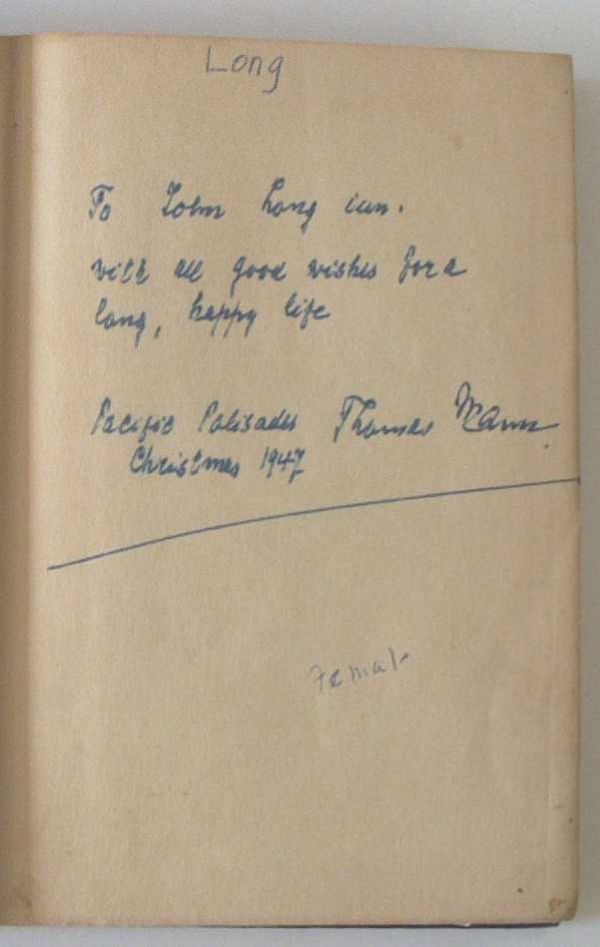 Long
To John Long iun.
with all good wishes for a
long, happy life
Pacific Palisades Thomas Mann
Christmas 1947